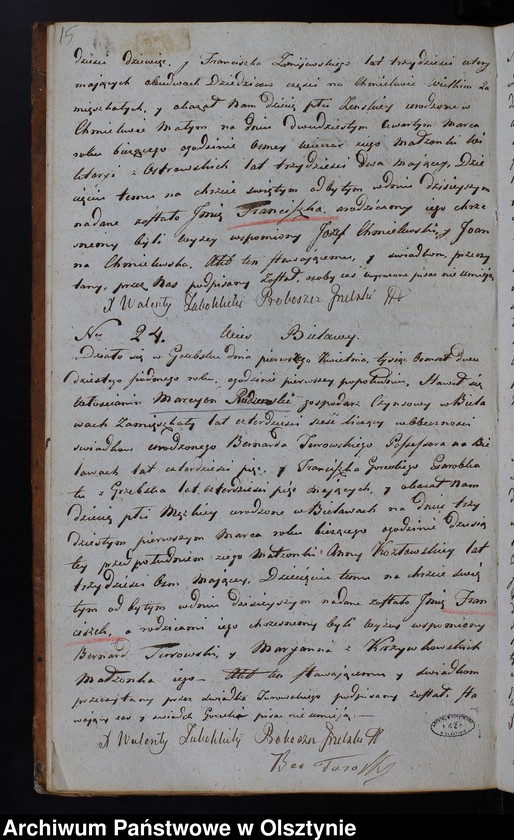 15
dzieści dziewięć, y Franciszka Zmijewskiego lat trzydzieści cztery
mających obudwóch Dziedziców części na Chmielewie Wielkim za
mięszkałych, y okazał Nam dziecię płci Żenskiey urodzone w
Chmielewie Małym na dniu dwudziestym czwartym Marca
roku bieżącego ogodzinie osmey wieczor z iego Małżonki Wi
ktoryi z Ostrowskich lat trzydzieści dwa mającey, Dzie
cięciu temu na chrzcie świętym odbytym wdniu dzisieyszym
nadane zostało Jmię Franciszka, arodzicami iego chrze
snemi byli wyżey wspomniony Jozef Chmielewski, y Joan
na Chmielewska. Akt ten stawaiącemu, y świadkom, przeczy
tany, przez Nas podpisany został, osoby zaś wyrażone pisac nie umieią
X Walenty Zabokliki Proboszcz Grzebski
Nro 24. Wies Bielawy.
Działo się w Grzebsku dnia pierwszego Kwietnia, tysiąc osmset dwu
dziestego siodmego roku, ogodzinie pierwszey popołudniu, Stawił się
włościanin Marcyan Rudowski gospodarz Czynszowy w Biela
wach Zamięszkały lat czterdzieści sześć liczący w obecności
swiadkow urodzonego Bernarda Turowskiego Possessora na Bie
lawach lat czterdzieści pięć, y Franciszka Goreckiego
z Grzebska lat czterdzieści pięć mających, y okazał Nam
dziecię płci Męzkiey urodzone w Bielawach na dniu trzy
dziestym pierwszym Marca roku bieżącego ogodzinie dziesią
tey przedpołudniem z iego Małżonki Anny Kozłowskiey lat
trzydzieści ośm mającey, Dziecięciu temu na chrzcie swię
tym odbytym wdniu dzisieyszym nadane zostało Jmię Fran
ciszek, a rodzicami iego chrzesnemi byli wyżey wspomniony
Bernard Turowski, y Maryanna z Krzywkowskich
Małżonka iego - Akt ten stawaiącemu y swiadkom
przeczytany przez świadka Turowskiego podpisany został sta
waiący zas y świadek Gorecki pisac nie umieią. —
X Walenty Zabokliki Proboszcz Grzebski
Ber Turoski
Archiwum Państwowe w Olsztynie